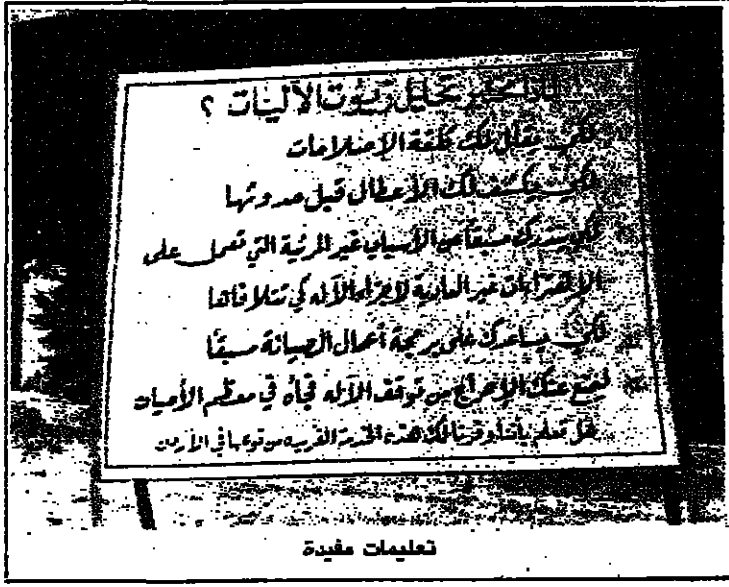 لماذا تحليل زيوت الآليات ؟
لكي يقلل لك كلفة الإصلاحات
لكي يكشف لك الأعطال قبل حدوثها
لكي ينذرك مسبقاً عن الأسباب غير المرئية التي تعمل على
الإهتراءات غير العادية لأجزاء الآلة كي تتلافاها
لكي يساعدك على برمجة أعمال الصيانة مسبقاً
ليمنع عنك الإحراج من توقف الآلة فجأة في معظم الأحيان
هل تعلم بأننا وفرنا لك هذه الخدمة الفريدة من نوعها في الأردن
تعليمات مفيدة